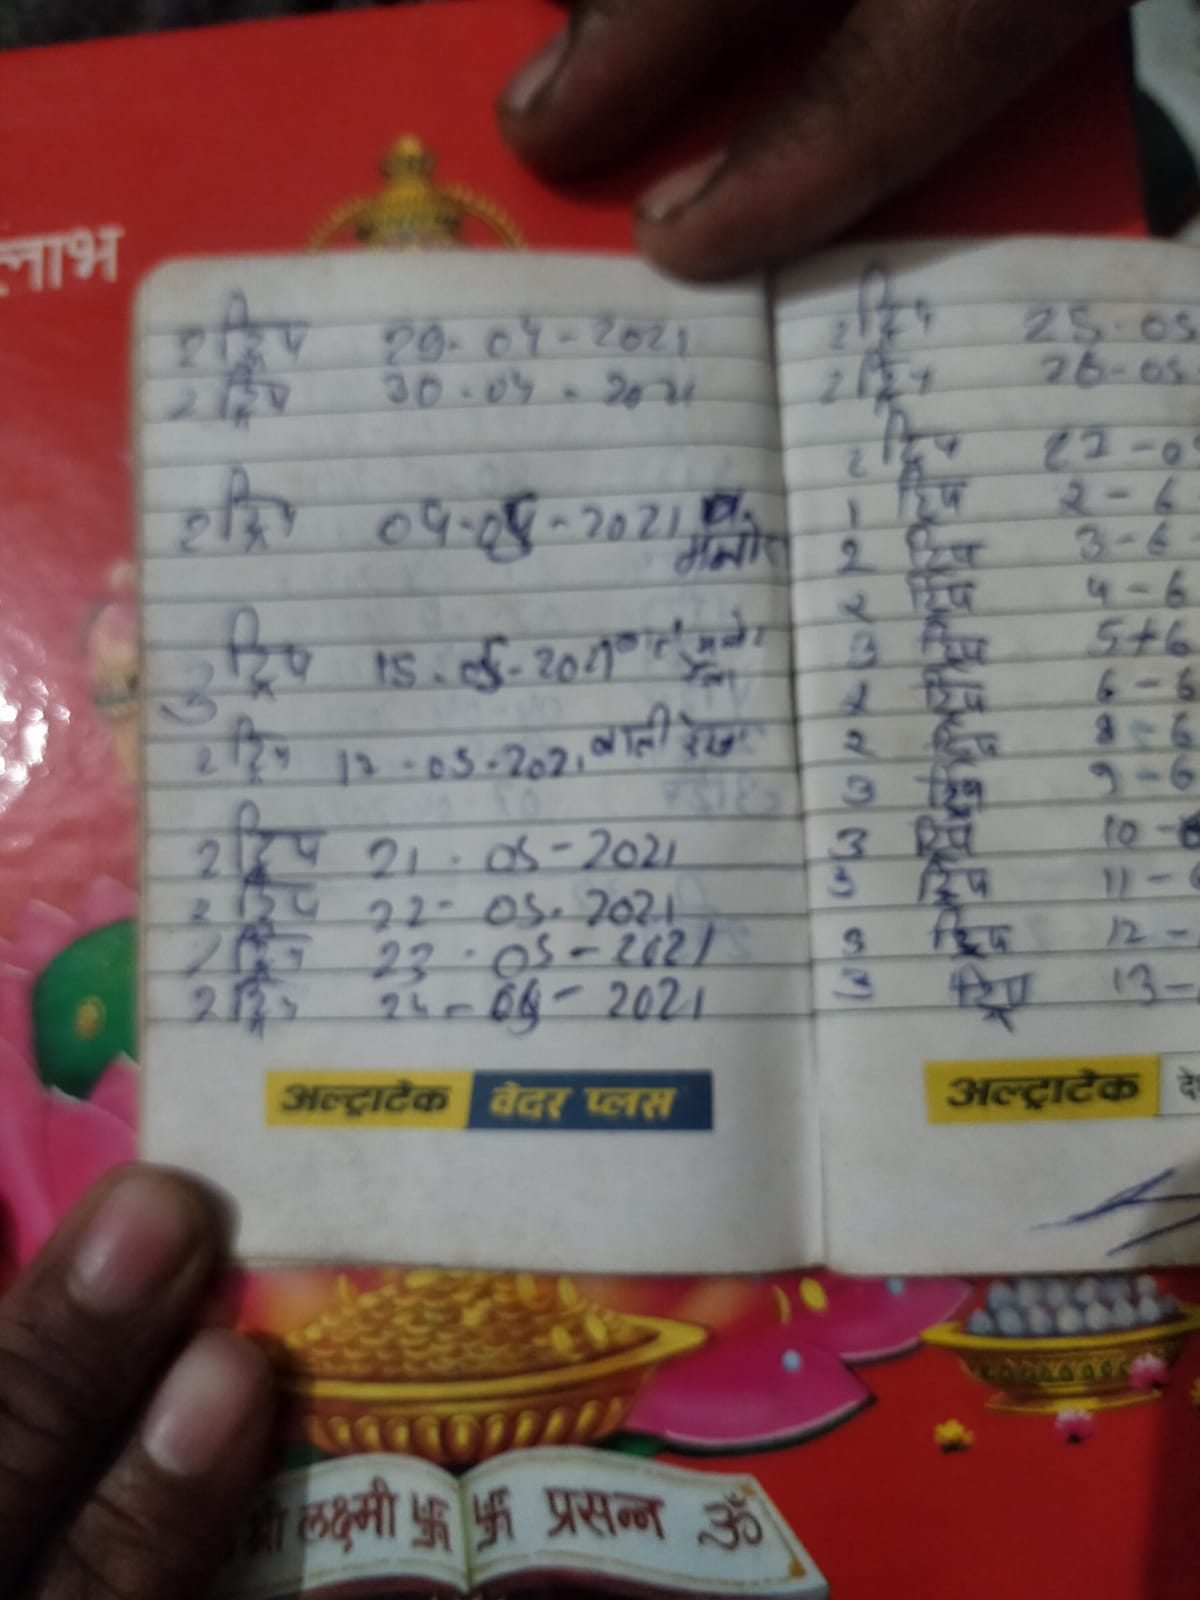 लाभ
2 ट्रिप 29-04-2021
2 ट्रिप 30-04-2021
2 ट्रिप 04-05-2021
3 ट्रिप 15-05-2021
2 ट्रिप 17-05-2021 वाली रेख
2 ट्रिप 21-05-2021
2 ट्रिप 22-05-2021
2 ट्रिप 23-05-2021
2 ट्रिप 24-05-2021
अल्ट्राटेक वेदर प्लस
2 ट्रिप 25-05
2 ट्रिप 26-05
2 ट्रिप 27-0
1 ट्रिप 2-6
2 ट्रिप 3-6
2 ट्रिप 4-6
3 ट्रिप 5+6
2 ट्रिप 6-6
2 ट्रिप 8-6
3 ट्रिप 9-6
3 ट्रिप 10-6
3 ट्रिप 11-6
3 ट्रिप 12-
3 ट्रिप 13-
अल्ट्राटेक दे
श्री लक्ष्मी 卐 卐 प्रसन्न ॐ